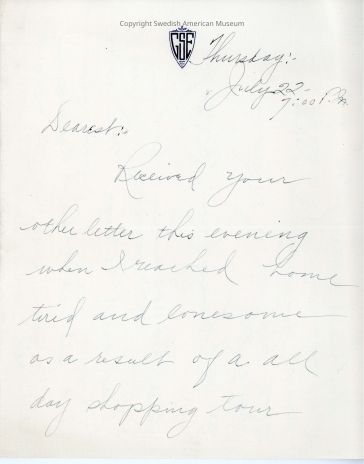 Copyright Swedish American Museum
GSE
Thursday:-
July 22-
7:00 P.M.
Dearest:-
Received your
other letter this evening
when I reached home
tired and lonesome
as a result of a all
day shopping tour